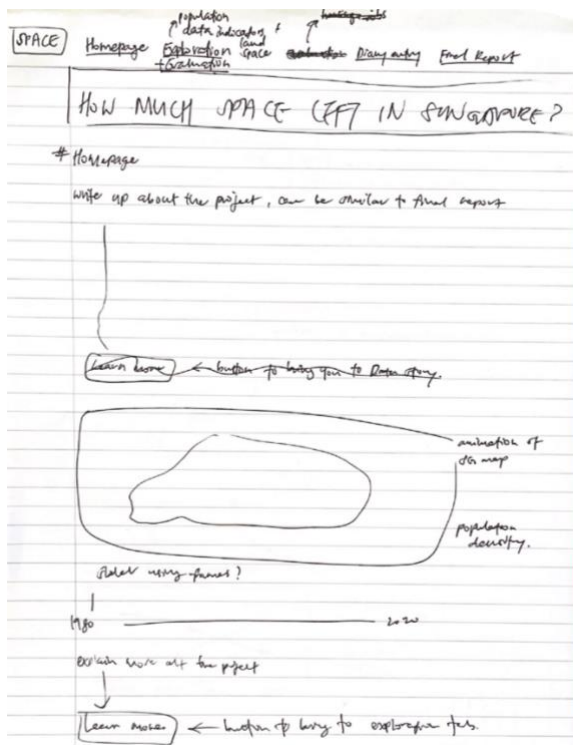 population
data indicators +
land
space
SPACE
Homepage Exploration Diary entry Final Report
+ Evaluation
HOW MUCH SPACE LEFT IN SINGAPORE?
# Homepage
write up about the project, can be similar to final report
Learn more ← button to bring you to Data story.
animation of
SG map
population
density.
using frames?
1980 2020
explain more abt the project
Learn more ← button to bring to exploration tab.